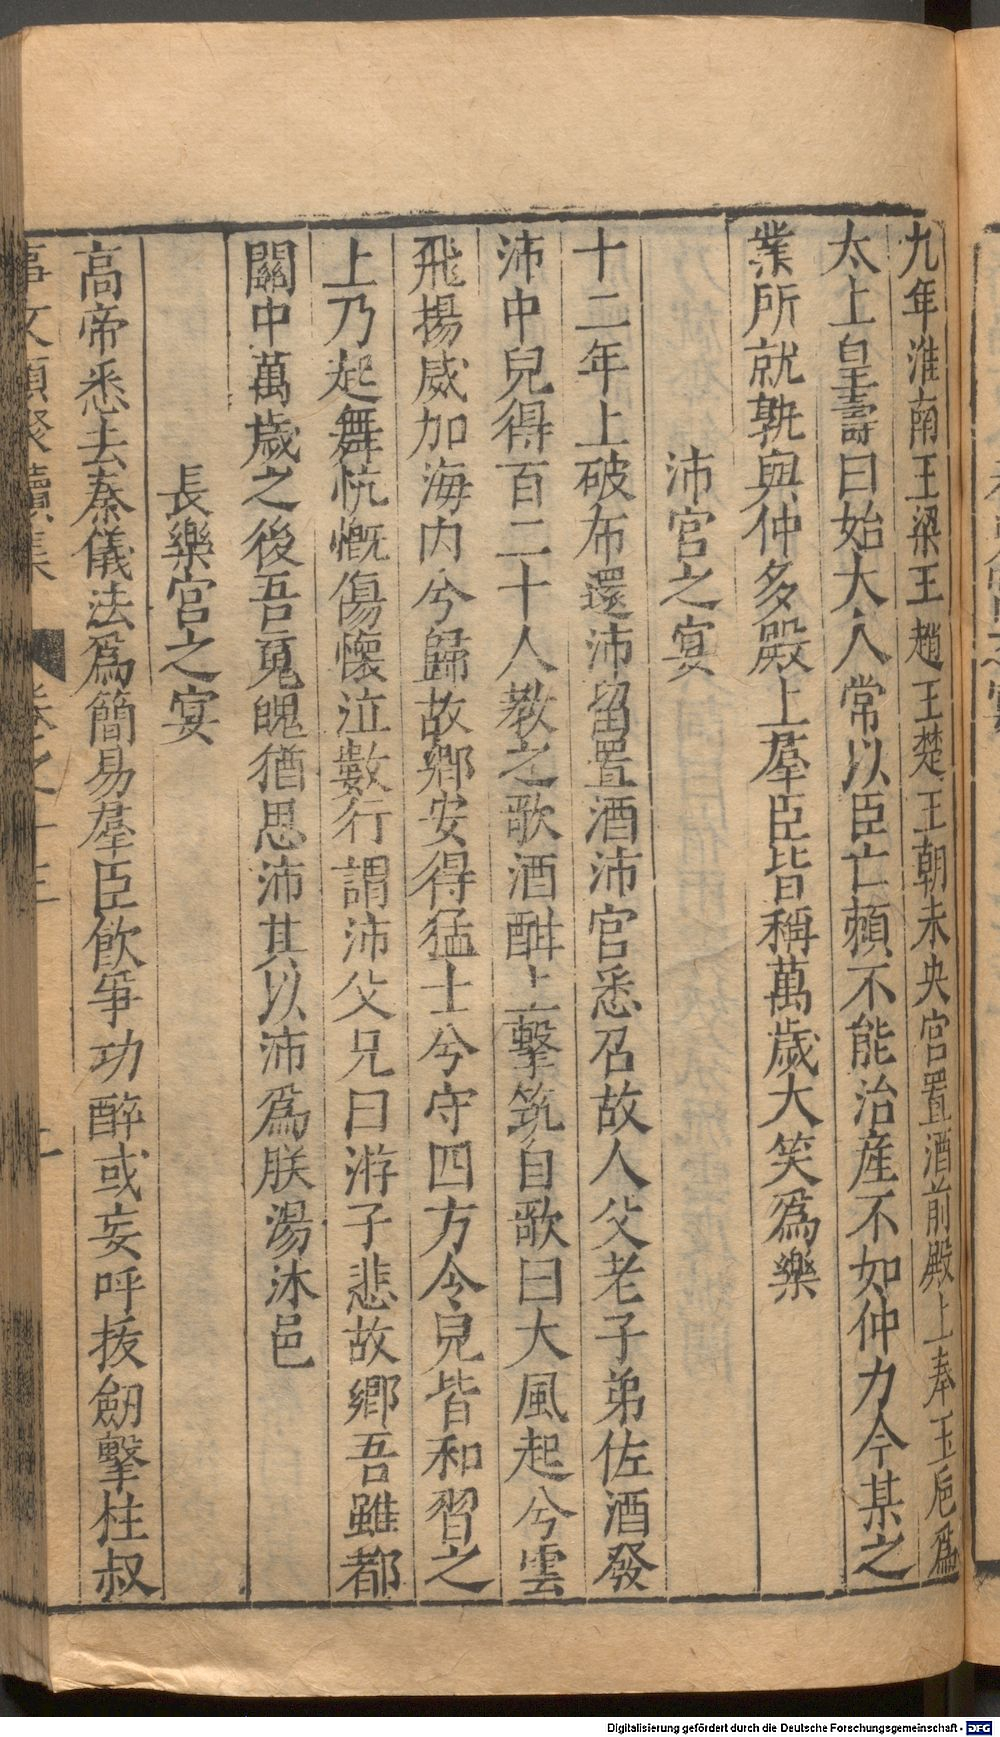 九年淮南王梁王趙王楚王朝未央宮置酒前殿上奉玉巵爲
太上皇壽曰始大人常以臣亡頼不能治産不如仲力今某之
業所就孰與仲多殿上羣臣皆稱萬歲大笑爲樂
沛宮之宴
十二年上破布還沛留置酒沛宮悉召故人父老子弟佐酒發
沛中兒得百二十人教之歌酒酣上擊筑自歌曰大風起兮雲
飛揚威加海内兮歸故鄉安得猛士兮守四方令兒皆和習之
上乃起舞忼慨傷懷泣數行謂沛父兄曰游子悲故鄉吾雖都
關中萬歲之後吾䰟魄猶思沛其以沛爲朕湯沐邑
長樂宮之宴
高帝悉去秦儀法爲簡易羣臣飲爭功醉或妄呼拔劒擊柱叔
事文類聚續集 卷之十三
Digitalisierung gefördert durch die Deutsche Forschungsgemeinschaft - DFG